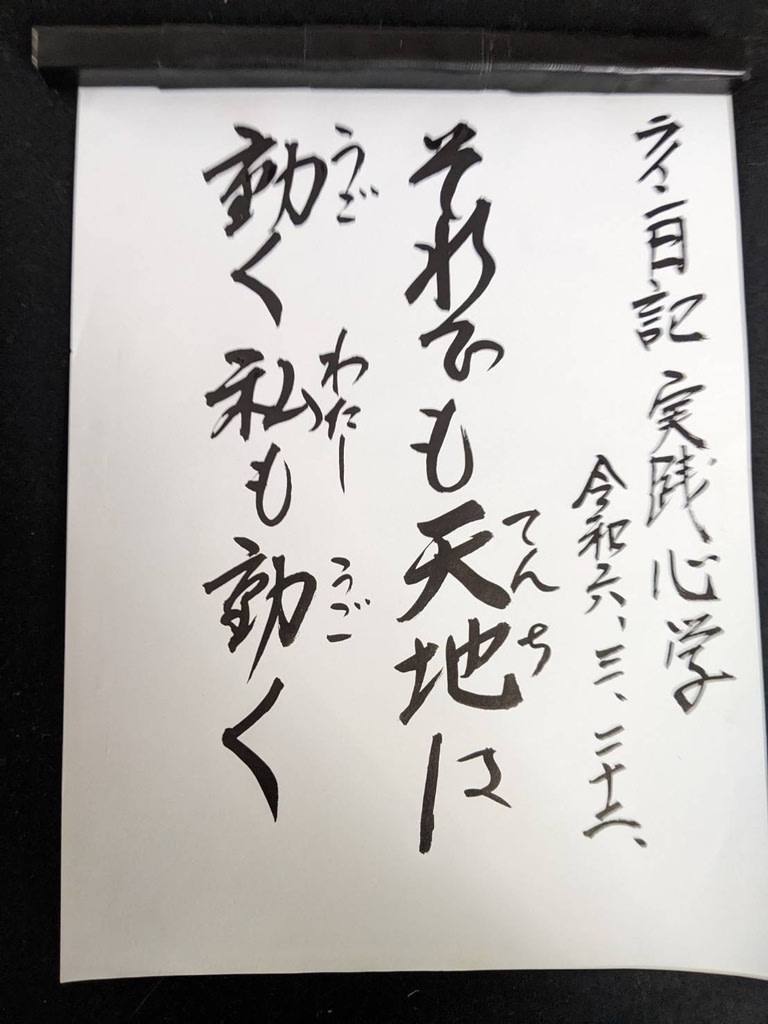 亥二日記 実践心学
令和六、三、二十二、
それでも天地は
てんち
動く私も動く
うご わたし うご